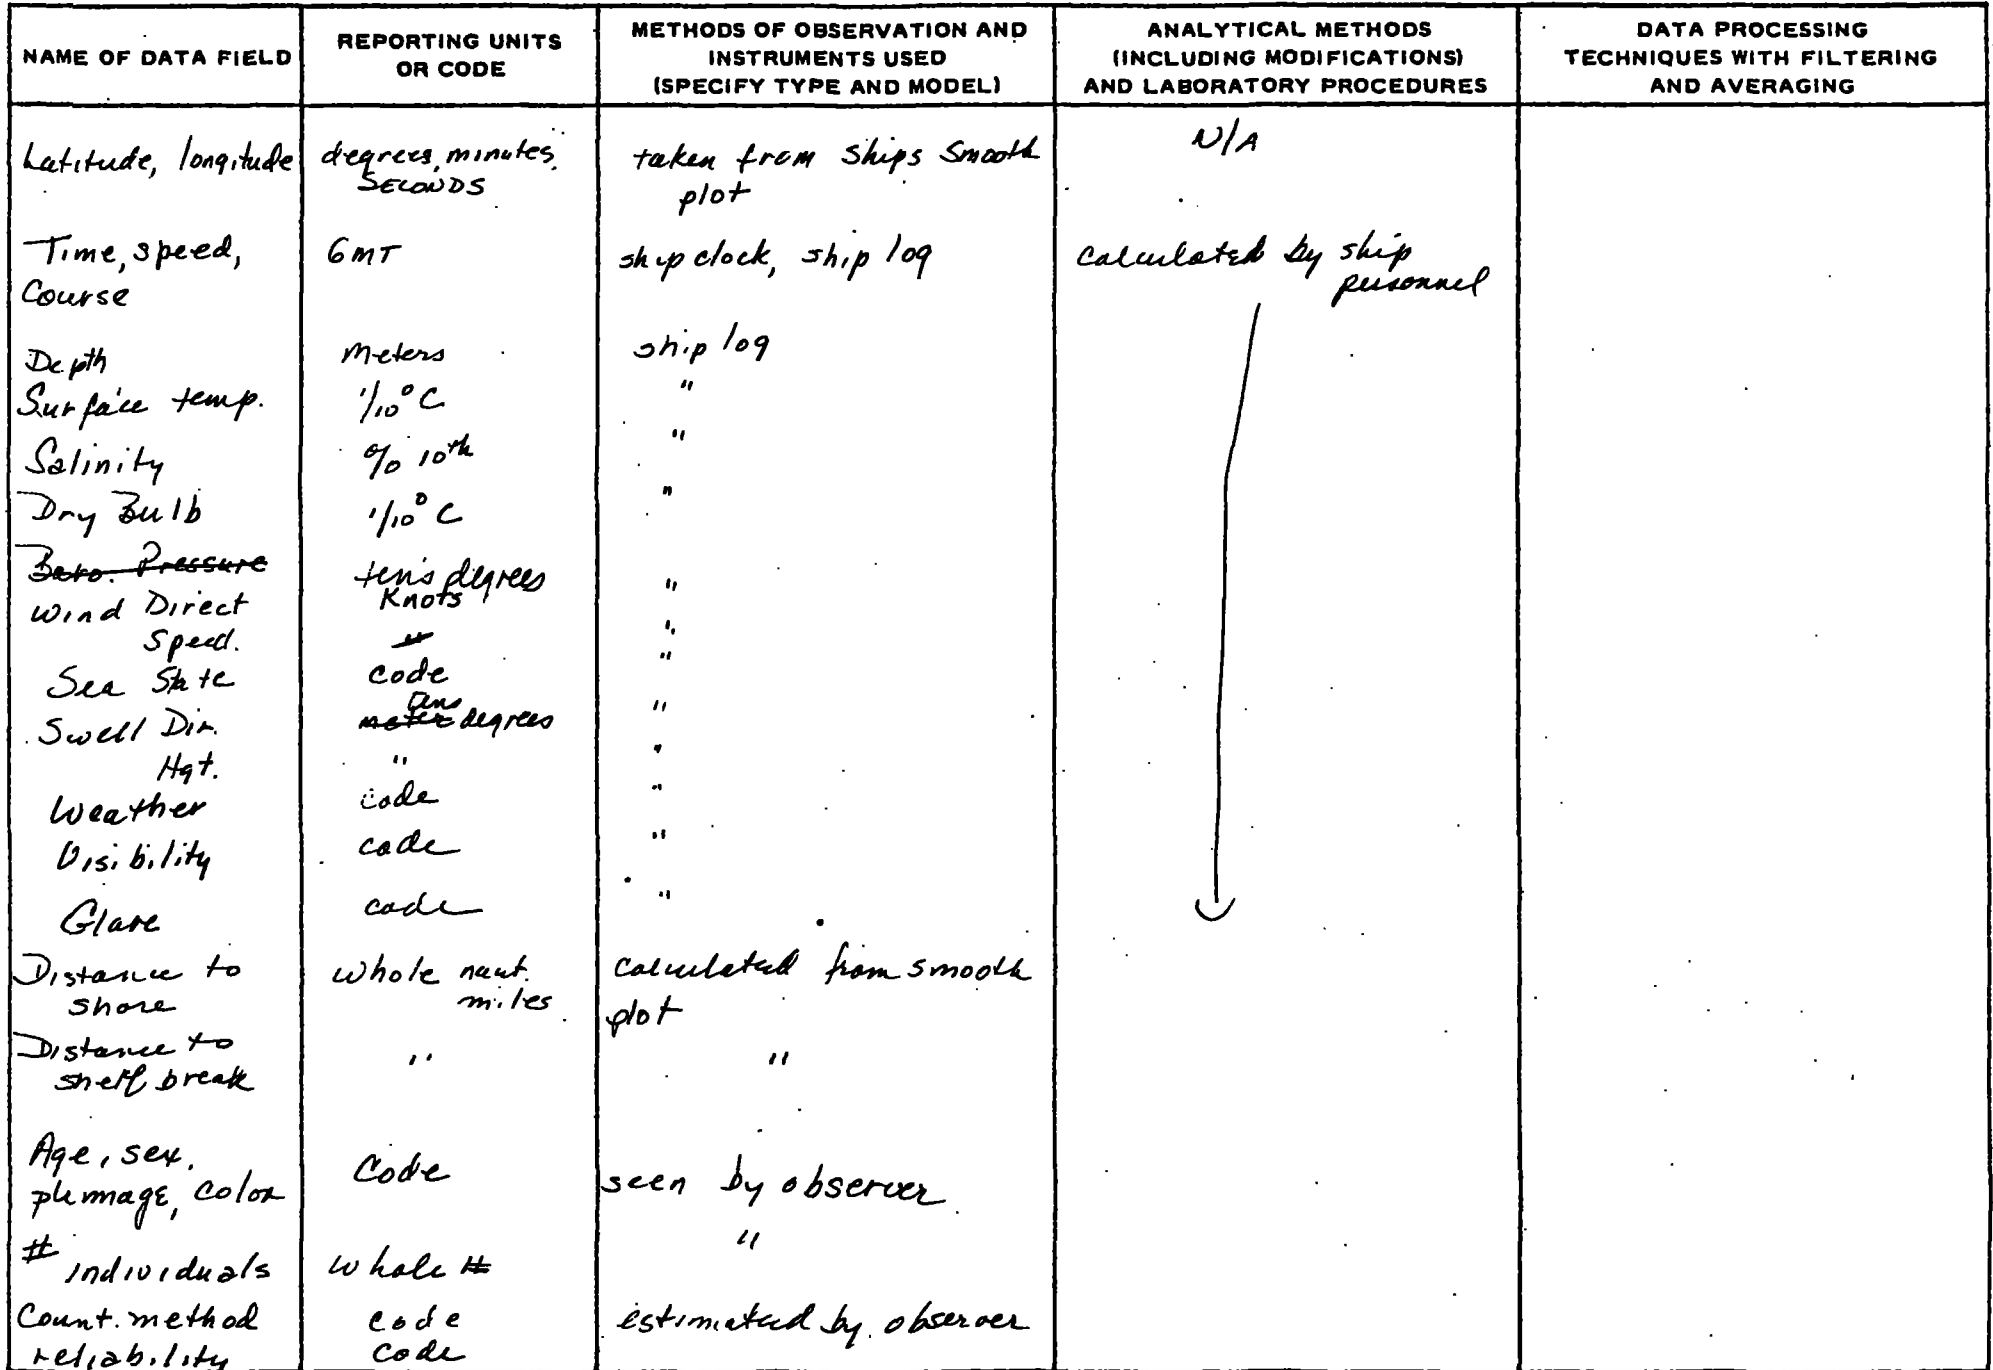 NAME OF DATA FIELD
REPORTING UNITS
OR CODE
METHODS OF OBSERVATION AND
INSTRUMENTS USED
(SPECIFY TYPE AND MODEL)
ANALYTICAL METHODS
(INCLUDING MODIFICATIONS)
AND LABORATORY PROCEDURES
DATA PROCESSING
TECHNIQUES WITH FILTERING
AND AVERAGING
Latitude, longitude
degrees, minutes,
SECONDS
taken from Ships Smooth
plot
N/A
Time, speed,
Course
GMT
ship clock, ship log
calculated by ship
personnel
Depth
Meters
ship log
Surface temp.
1/10° C
"
Salinity
% 10th
"
Dry Bulb
1/10° C
"
Baro. Pressure
Wind Direct
ten's degrees
"
Speed.
Knots
"
"
Sea State
code
"
Swell Dir.
tens
meter degrees
"
Hgt.
"
"
Weather
code
"
Visibility
code
"
Glare
code
"
Distance to
shore
whole naut.
miles
calculated from smooth
plot
Distance to
shelf break
"
"
Age, sex,
plumage, color
Code
seen by observer
# individuals
whole #
"
Count. method
code
estimated by observer
reliability
code